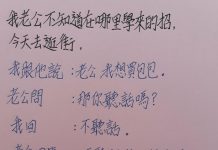 我老公不知道在哪里學來的招,
今天去逛街,
我跟他說:老公我想買包包.
老公問:那你聽話嗎?
我回:不聽話.